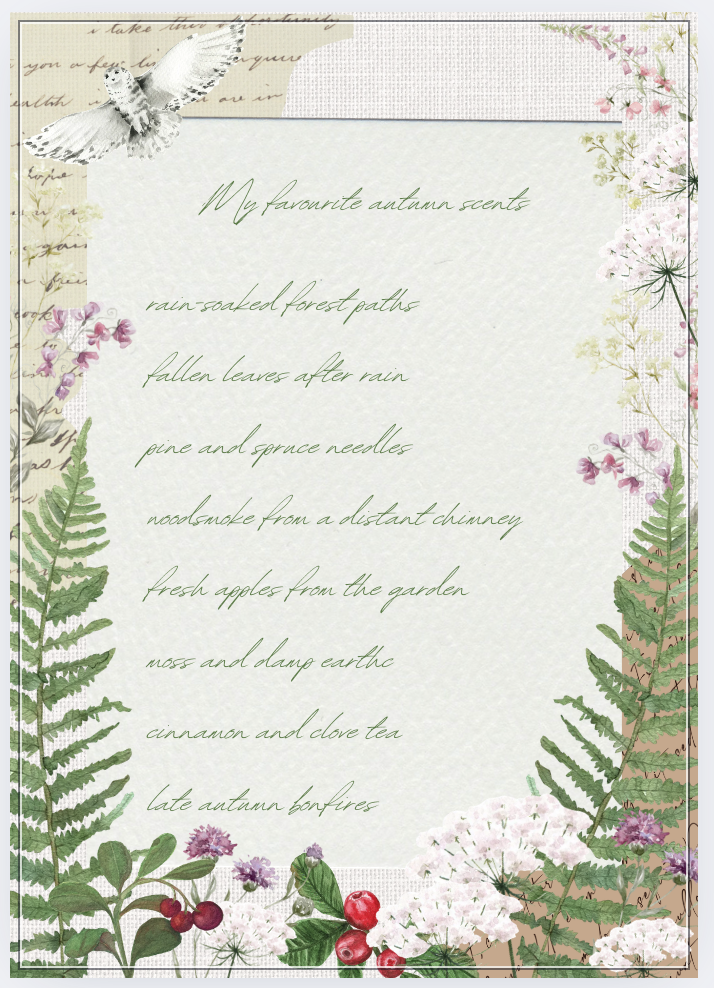 i take this opportunity
you a few
are in
hope
My favourite autumn scents
rain-soaked forest paths
fallen leaves after rain
pine and spruce needles
noodsmoke from a distant chimney
fresh apples from the garden
moss and damp earthc
cinnamon and clove tea
late autumn bonfires